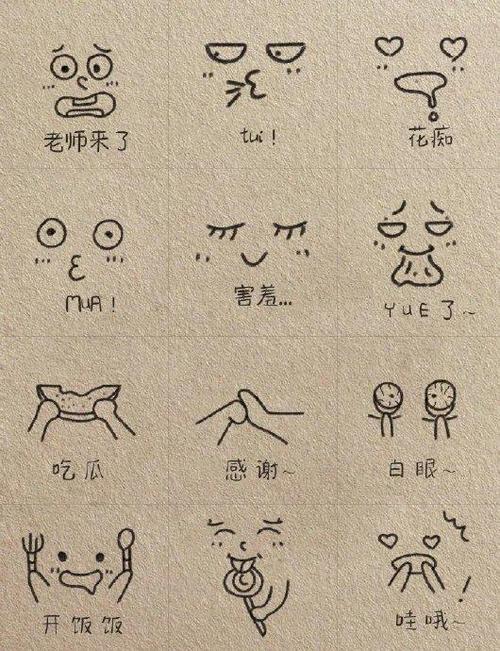 老师来了
tui！
花痴
MUA！
害羞...
YUE了~
吃瓜
感谢~
白眼~
开饭饭
哇哦~